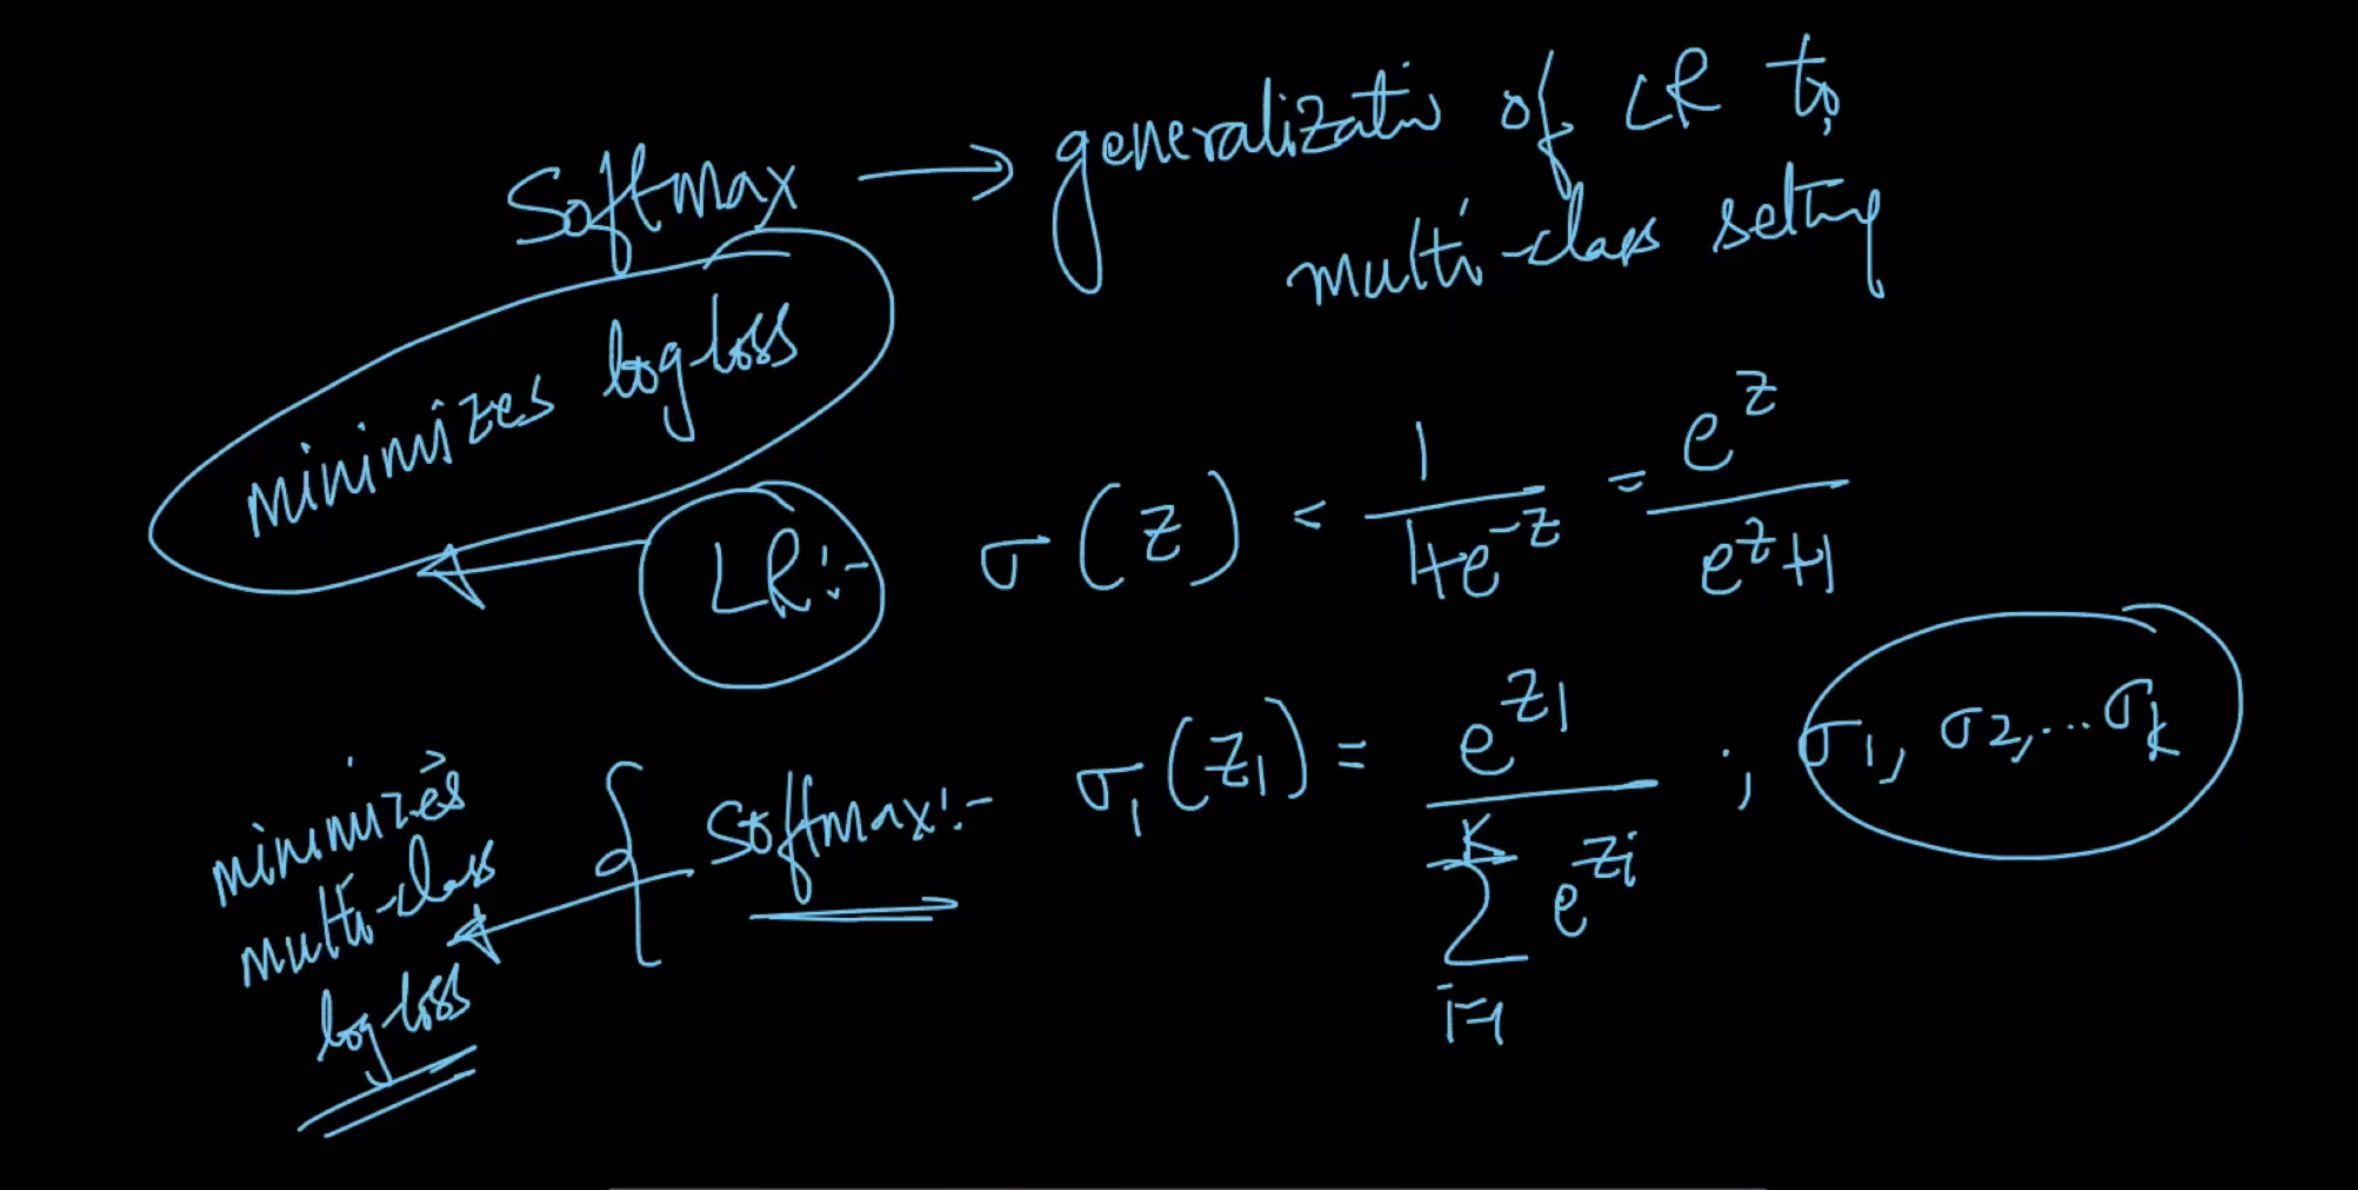 Softmax → generalizatin of LR to
multi-class setting
minimizes log-loss
LR:- σ(z) = 1/(1+e^-z) = e^z/(e^z+1)
minimizes multi-class log-loss
Softmax:- σ₁(z₁) = e^z₁ / ∑_{i=1}^{K} e^zi ; σ₁, σ₂, ... σₖ